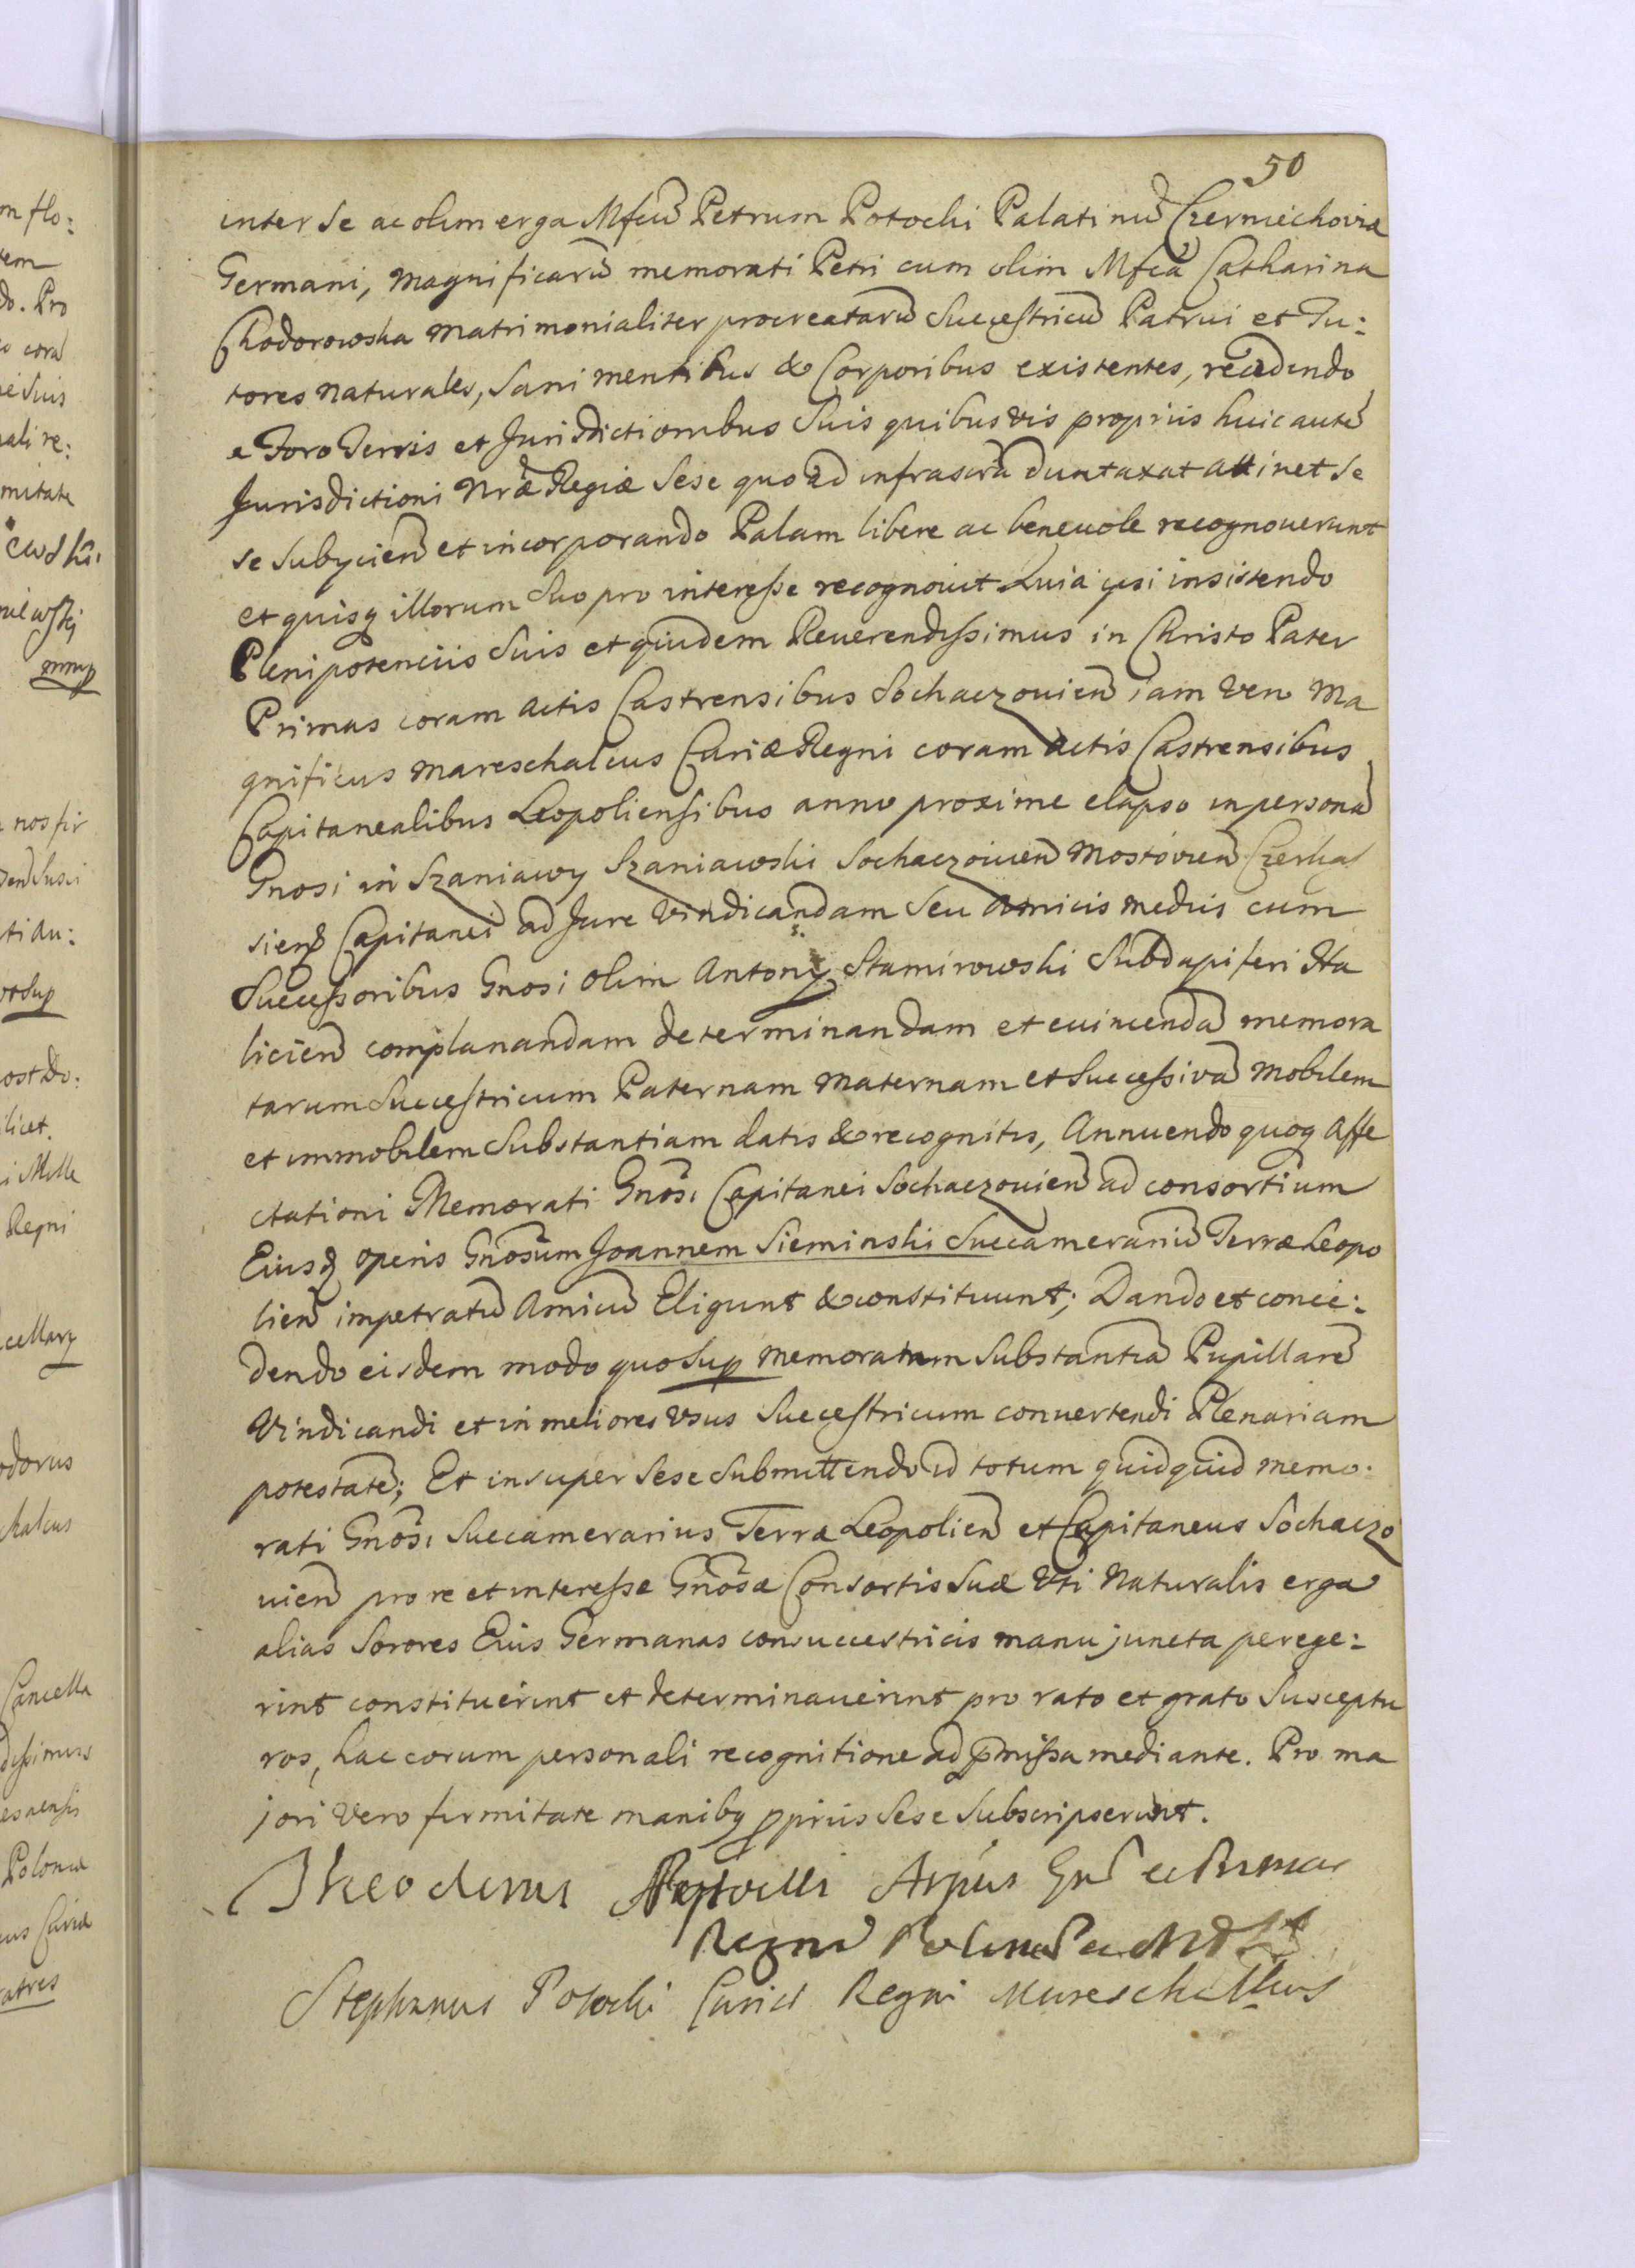 50
inter se ac olim erga Mfcũ Petrum Potocki Palatinũ Czerniechoviæ
Germani, Magnificarũ memorati Petri cum olim Mfcã Catharina
Chodorowska matrimonialiter procreatarũ Successtricũ Patrui et Tu:
tores naturales, Sani mentibus & Corporibus existentes, recedendo
a Foro Terris et Jurisdictionibus Suis quibusvis propriis huic autẽ
Jurisdictioni Nræ Regiæ Sese quoad infrascrã duntaxat attinet Se
se Subycien̄ et incorporando Palam libere ac benevole recognoverunt
et quisq illorum Suo pro interesse recognovit Quia ipsi insistendo
Plenipotenciis Suis et quidem Reverendissimus in Christo Pater
Primas coram Actis Castrensibus Sochaczovien̄ iam vero Ma
gnificus Mareschalcus Curiæ Regni coram Actis Castrensibus
Capitanealibus Leopoliensibus anno proxime elapso in personã
Gnosi in Szaniawy Szaniawski Sochaczovien̄ Mostovien̄ Czerkas
sien̄ Capitanei ad Jure Vindicandam Seu Amicis mediis cum
Successoribus Gnosi olim Antonÿ Stamirowski Subdapiferi Ha
licien̄ complanandam determinandam et evincendã memora
tarum Successtricum Paternam Maternam et Successivã Mobilem
et immobilem Substantiam datis & recognitis, Annuendo quoq Affe
ctationi Memorati Gnosi Capitanei Sochaczovien̄ ad consortium
Eiusd operis Gnosum Joannem Sieminski Succamerariũ Terræ Leopo
lien̄ impetratũ Amicũ Eligunt & constituunt; Dando et conce:
dendo eisdem modo quo Sup memoratam Substantiã Pupillarẽ
Vindicandi et in meliores Usus Successtricum convertendi Plenariam
potestatẽ; Et insuper Sese Submittendo id totum quidquid memo:
rati Gnosi Succamerarius Terræ Leopolien̄ et Capitaneus Sochaczo
vien̄ pro re et interesse Gnosæ Consortis Suæ Uti Naturalis erga
alias Sorores Eius Germanas consuccestricis manu juncta perege:
rint constituerint et determinauerint pro rato et grato Susceptu
ros, hac eorum personali recognitione ad p̄missa mediante. Pro ma
jori Vero firmitate manibq ppriis Sese Subscripserunt.
Theodorus Potocki Arpus Gn̄s et Primas
Regni Poloniæ et M D L
Stephanus Potocki Curiæ Regni Mareschallcus